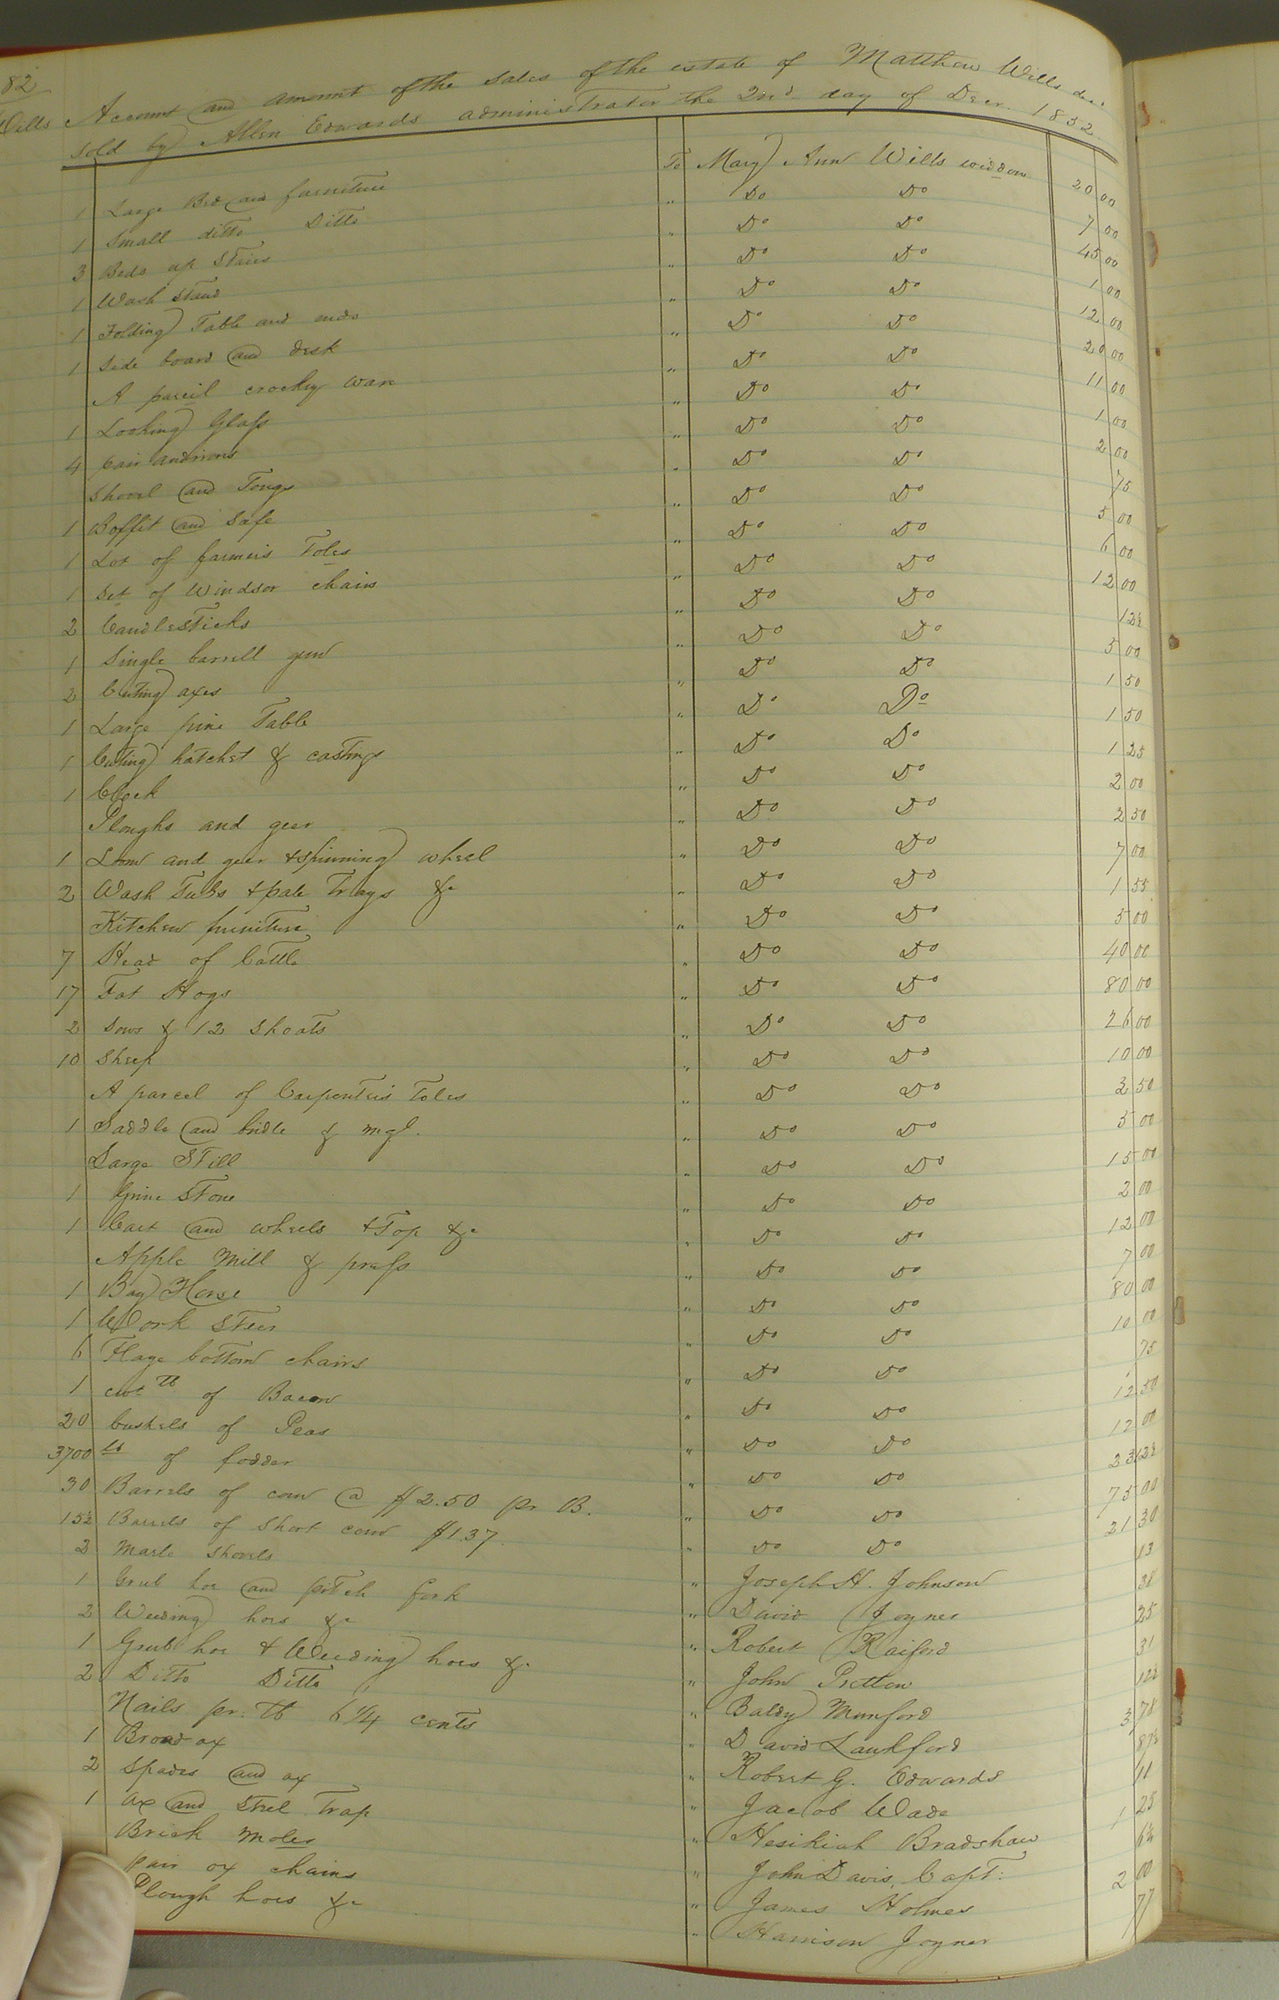 82
Wills
Account and amount of the sales of the estate of Matthew Wills decd
sold by Allen Edwards administrator the 2nd day of Decr. 1852
1 Large Bed and furniture To Mary Ann Wills widdow 20 00
1 Small ditto Ditto " Do Do 7 00
3 Beds up stairs " Do Do 45 00
1 Wash stand " Do Do 1 00
1 Folding Table and ends " Do Do 12 00
1 Side board and desk " Do Do 20 00
A parcil crockry ware " Do Do 11 00
1 Looking Glass " Do Do 1 00
4 Cair andirons " Do Do 2 00
Shovel and Tongs " Do Do 75
1 Boffit and Safe " Do Do 5 00
1 Lot of farmers Toles " Do Do 6 00
1 Set of Windsor chairs " Do Do 12 00
2 Candlesticks " Do Do 12½
1 Single barrell gun " Do Do 5 00
2 Cuting axes " Do Do 1 50
1 Large pine Table " Do Do 1 50
1 Cuting hatchet & castings " Do Do 1 25
1 Clock " Do Do 2 00
Ploughs and geer " Do Do 2 50
1 Loom and geer & spinning wheel " Do Do 7 00
2 Wash Tubs & pale Trays &c " Do Do 1 55
Kitchen furniture " Do Do 5 00
7 Head of Cattle " Do Do 40 00
17 Fat Hogs " Do Do 80 00
2 Sows & 12 Shoats " Do Do 26 00
10 Sheep " Do Do 10 00
A parcel of Carpenters Toles " Do Do 3 50
1 Saddle and bridle & mgl. " Do Do 5 00
Large Still " Do Do 15 00
1 Grine Stone " Do Do 2 00
1 Cart and wheels & Top &c " Do Do 12 00
Apple Mill & press " Do Do 7 00
1 Bay Horse " Do Do 80 00
1 Work Steer " Do Do 10 00
6 Flage bottom chairs " Do Do 75
1 cwt lb of Bacon " Do Do 12 50
20 bushels of Peas " Do Do 12 00
3700 lb of fodder " Do Do
30 Barrels of corn @ $2.50 pr B. " Do Do 75 00
15½ Barrels of short corn $1.37 " Do Do 21 30
2 Marle shovels " Joseph H. Johnson 13
1 Grub hoe and pitch fork " David Joyner 38
2 Weeding hoes &c " Robert Raiford 25
1 Grub hoe & Weeding hoes &c " John Pretlow 31
2 Ditto Ditto " Baldy Munford 12½
Nails pr. lb 6 1/4 cents " David Lankford 3 78
1 Broad ax " Robert G. Edwards 87½
2 Spades and ax " Jacob Wade 11
1 Ax and Steel Trap " Hesikiah Bradshaw 1 25
Brick Moles " John Davis, Capt. 6¼
pair ox chains " James Holmes 2 00
Plough hoes &c " Harrison Joyner 77